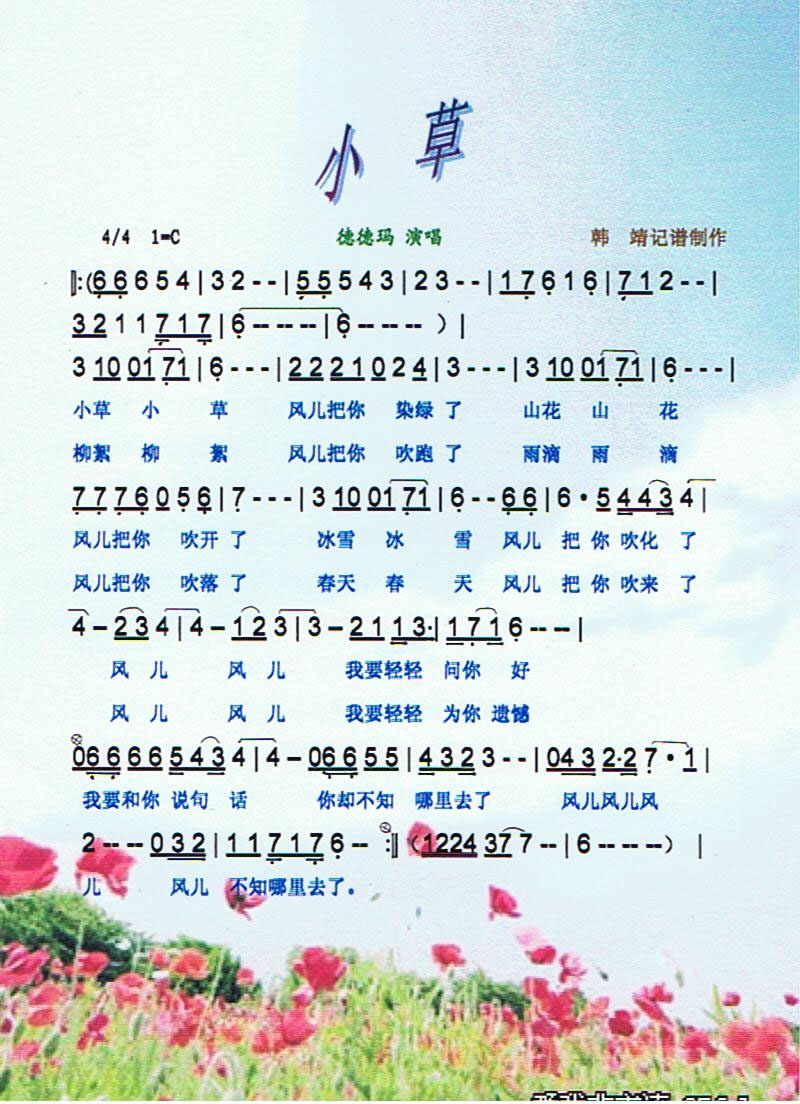 小草
4/4 1=C 德德玛 演唱 韩 靖记谱制作
‖:(6 6 6 5 4 | 3 2 - - | 5 5 5 4 3 | 2 3 - - | 1 7 6 1 6 | 7 1 2 - - |
3 2 1 1 7 1 7 | 6 - - - - | 6 - - - - ) |
3 10 01 71 | 6 - - - | 2 2 2 1 0 2 4 | 3 - - - | 3 10 01 71 | 6 - - - |
小草 小 草 风儿把你 染绿 了 山花 山 花
柳絮 柳 絮 风儿把你 吹跑 了 雨滴 雨 滴
7 7 7 6 0 5 6 | 7 - - - | 3 10 01 71 | 6 - - 6 6 | 6 · 5 4 4 3 4 |
风儿把你 吹开 了 冰雪 冰 雪 风儿 把 你 吹化 了
风儿把你 吹落 了 春天 春 天 风儿 把 你 吹来 了
4 - 2 3 4 | 4 - 1 2 3 | 3 - 2 1 1 3· | 1 7 1 6 - - - |
风 儿 风 儿 我要轻轻 问你 好
风 儿 风 儿 我要轻轻 为你 遗憾
06 6 6 6 5 4 3 4 | 4 - 06 6 5 5 | 4 3 2 3 - - | 04 3 2·2 7 · 1 |
我要和你 说句 话 你却不知 哪里去了 风儿风儿风
2 - - - 0 3 2 | 1 1 7 1 7 6 - - :‖ (1224 37 7 - - | 6 - - - - ) |
儿 风儿 不知哪里去了。